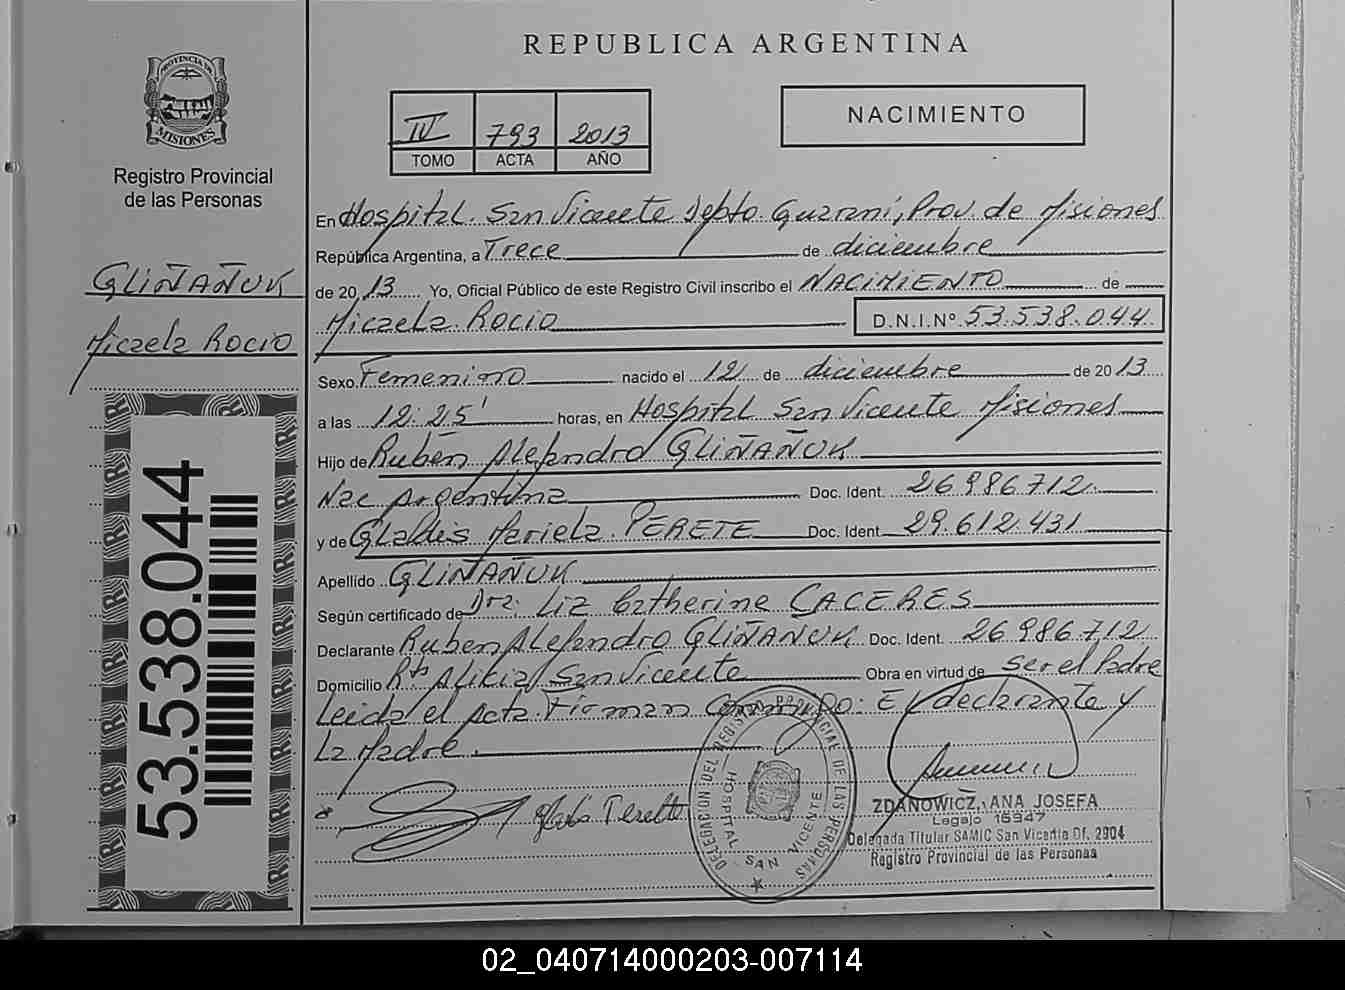 REPUBLICA ARGENTINA
PROVINCIA DE
MISIONES
Registro Provincial
de las Personas
IV 793 2013
TOMO ACTA AÑO
NACIMIENTO
GLIÑAÑUK
Micaela Rocio
53.538.044
En Hospital San Vicente Depto. Guarani, Prov. de Misiones
República Argentina, a Trece de diciembre
de 2013 Yo, Oficial Público de este Registro Civil inscribo el NACIMIENTO de
Micaela Rocio D.N.I.Nº 53.538.044
Sexo Femenino nacido el 12 de diciembre de 2013
a las 12:25' horas, en Hospital San Vicente Misiones
Hijo de Rubén Alejandro GLIÑAÑUK
Nac Argentina Doc. Ident. 26986712
y de Gladis Mariela PERETE Doc. Ident. 29.612.431
Apellido GLIÑAÑUK
Según certificado de Dra. Liz Catherine CACERES
Declarante Ruben Alejandro GLIÑAÑUK Doc. Ident. 26986712
Domicilio San Vicente Obra en virtud de ser el Padre
Leida el Acta Firman Conmigo: El declarante y
La Madre.
DELEGACION DEL REGISTRO PROVINCIAL DE LAS PERSONAS
HOSPITAL SAN VICENTE
ZDANOWICZ, ANA JOSEFA
Legajo 15347
Delegada Titular SAMIC San Vicente Of. 2904
Registro Provincial de las Personas
02_040714000203-007114